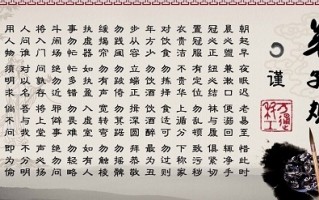 弟子规
谨
朝起早 夜眠迟 老易至 惜此时
晨必盥 兼漱口 便溺回 辄净手
冠必正 纽必结 袜与履 俱紧切
置冠服 有定位 勿乱顿 致污秽
衣贵洁 不贵华 上循分 下称家
对饮食 勿拣择 食适可 勿过则
年方少 勿饮酒 饮酒醉 最为丑
步从容 立端正 揖深圆 拜恭敬
勿践阈 勿跛倚 勿箕踞 勿摇髀
缓揭帘 勿有声 宽转弯 勿触棱
执虚器 如执盈 入虚室 如有人
事勿忙 忙多错 勿畏难 勿轻略
斗闹场 绝勿近 邪僻事 绝勿问
将入门 问孰存 将上堂 声必扬
人问谁 对以名 吾与我 不分明
用人物 须明求 倘不问 即为偷